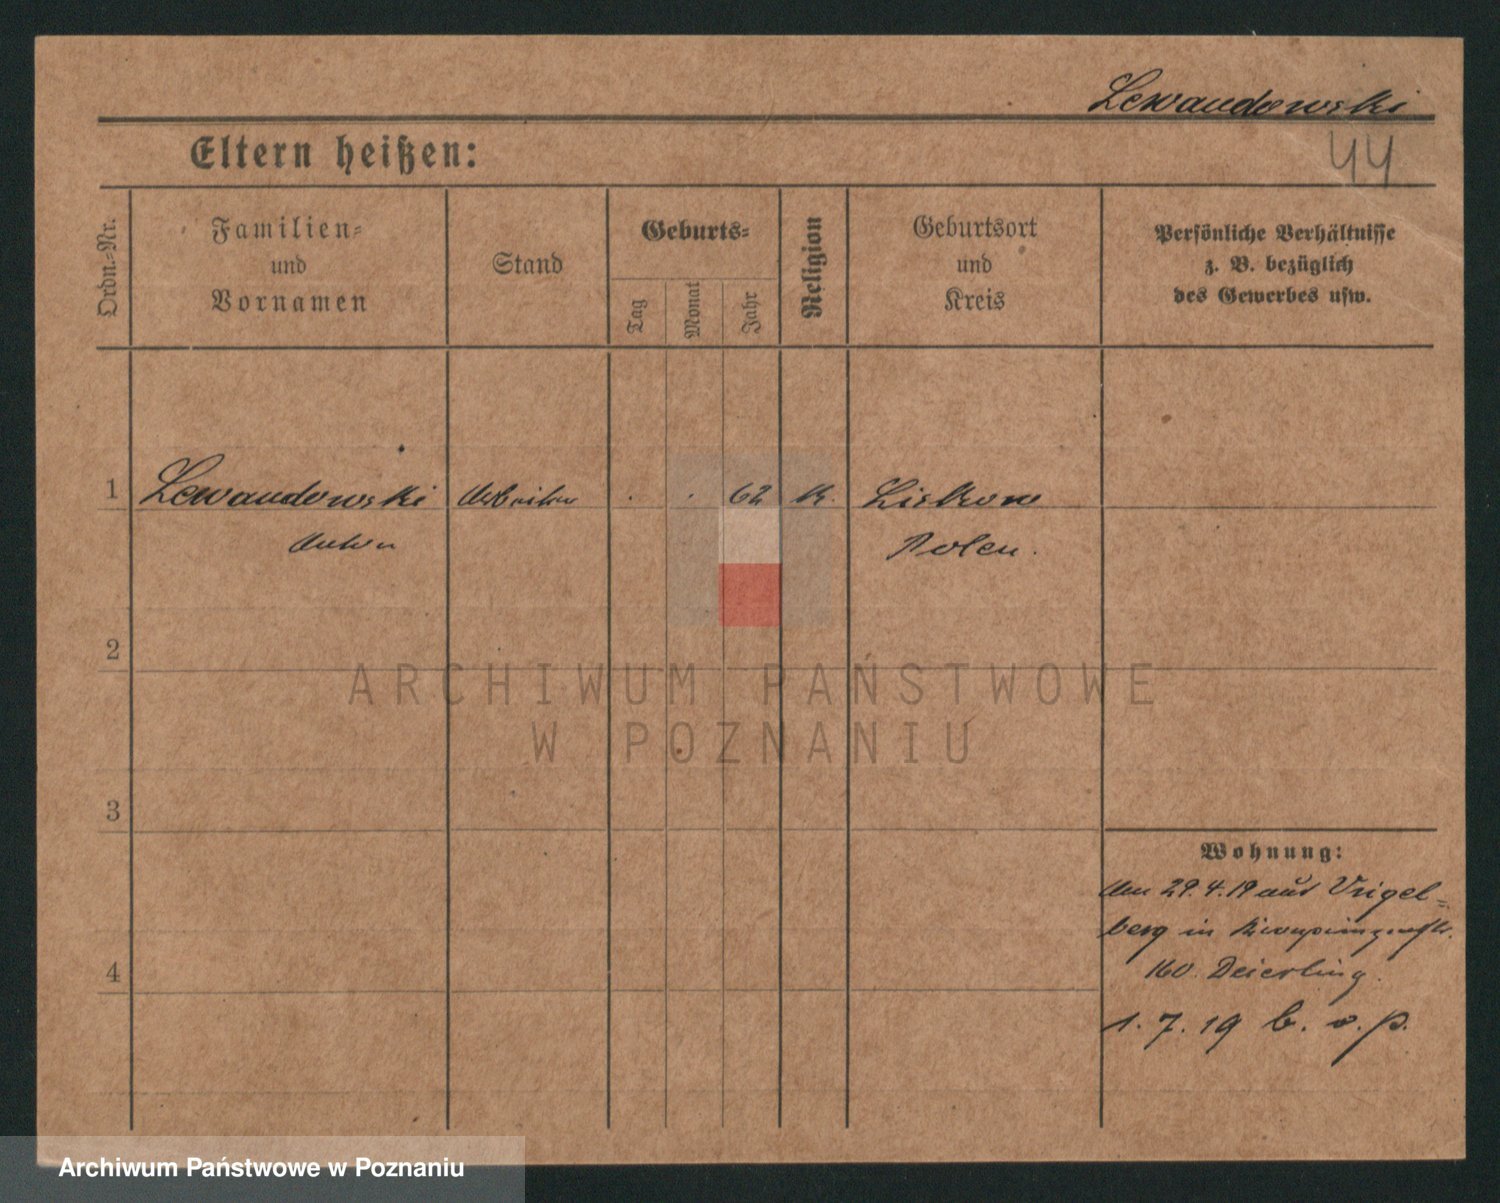 Lewandowski
44
Eltern heißen:
Ordn.-Nr.
Familien-
und
Vornamen
Stand
Geburts-
Tag
Monat
Jahr
Religion
Geburtsort
und
Kreis
Persönliche Verhältnisse
z. B. bezüglich
des Gewerbes usw.
1 Lewandowski Arbeiter . . 62 K. Liskow
Anton Polen.
2
3
4
ARCHIWUM PAŃSTWOWE
W POZNANIU
Wohnung:
Am 29.4.19 aus
berg in
160. Deierling.
1.7.19 b. o. p.
Archiwum Państwowe w Poznaniu